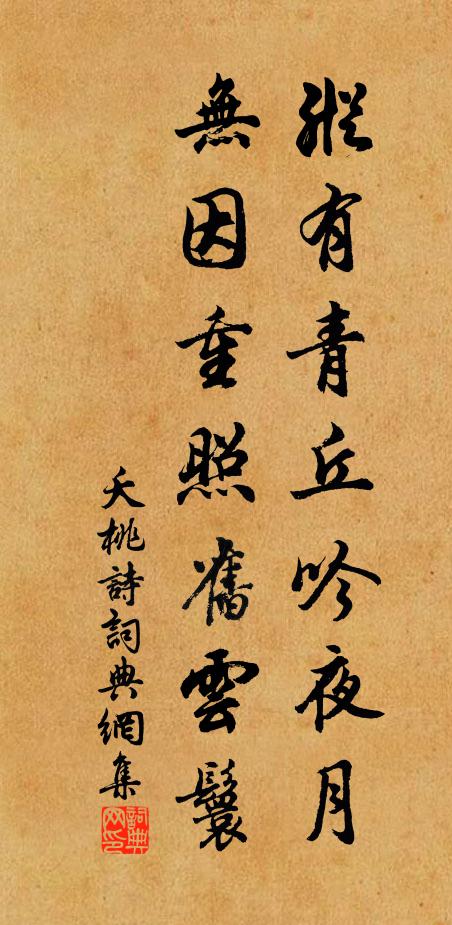 縱有青丘吟夜月
無因重照舊雲鬟
夭桃詩詞典網集
詞典网印